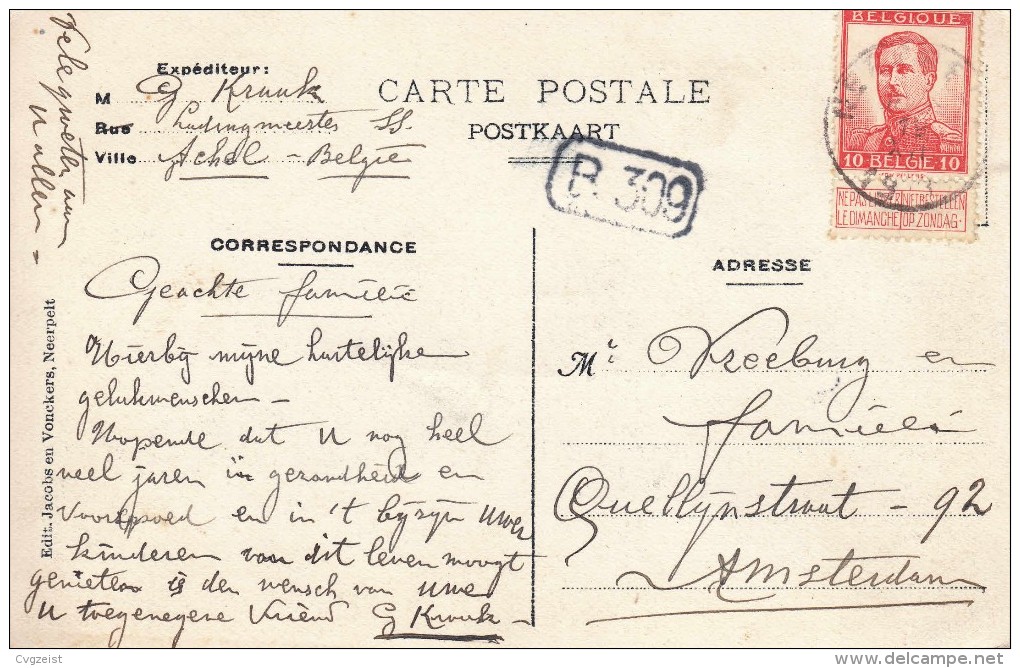 Veel groeten aan
U allen =
Expéditeur:
M G Kronk
Rue Ladingmeester SS
Ville Achel - België
CARTE POSTALE
POSTKAART
B. 309
BELGIQUE
10 BELGIE 10
NE PAS LIVRER NIET BESTELLEN
LE DIMANCHE OP ZONDAG.
CORRESPONDANCE
Geachte familie
Hierbij mijne hartelijke
gelukwenschen -
Hopende dat U nog heel
veel jaren in gezondheid en
voorspoed en in 't bijzijn uwer
kinderen van dit leven moogt
genieten is den wensch van uwe
U toegenegene Vriend G Kronk -
ADRESSE
Mr: Vreeburg en
familie
Quellijnstraat - 92
Amsterdam
Edit. Jacobs en Vonckers, Neerpelt
Cvgzeist
delcampe.net